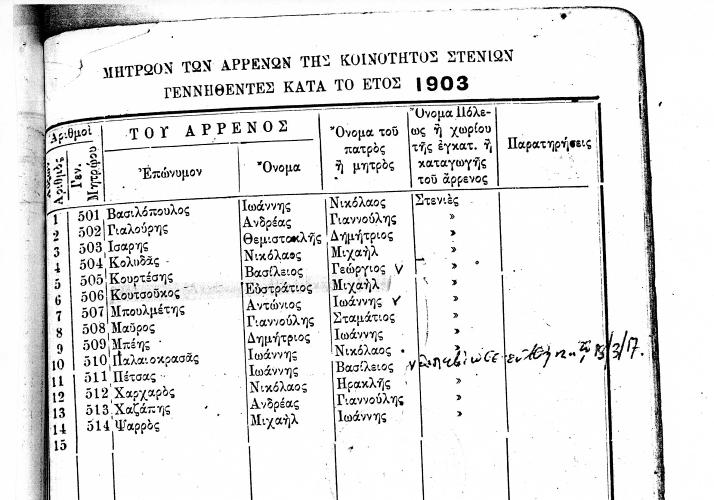 ΜΗΤΡΩΟΝ ΤΩΝ ΑΡΡΕΝΩΝ ΤΗΣ ΚΟΙΝΟΤΗΤΟΣ ΣΤΕΝΙΩΝ
ΓΕΝΝΗΘΕΝΤΕΣ ΚΑΤΑ ΤΟ ΕΤΟΣ 1903
Ἀριθμοί
Ἀριθμὸς
Γεν. Μητρώου
ΤΟΥ ΑΡΡΕΝΟΣ
Ἐπώνυμον
Ὄνομα
Ὄνομα τοῦ
πατρὸς
ἢ μητρὸς
Ὄνομα Πόλε-
ως ἢ χωρίου
τῆς ἐγκατ. ἢ
καταγωγῆς
τοῦ ἄρρενος
Παρατηρήσεις
1 501 Βασιλόπουλος Ἰωάννης Νικόλαος Στενιὲς
2 502 Γιαλούρης Ἀνδρέας Γιαννούλης »
3 503 Ισαρης Θεμιστοκλῆς Δημήτριος »
4 504 Κολυδᾶς Νικόλαος Μιχαὴλ »
5 505 Κουρτέσης Βασίλειος Γεώργιος »
6 506 Κουτσοῦκος Εὐστράτιος Μιχαὴλ »
7 507 Μπουλμέτης Ἀντώνιος Ἰωάννης »
8 508 Μαῦρος Γιαννούλης Σταμάτιος »
9 509 Μπέης Δημήτριος Ἰωάννης »
10 510 Παλαιοκρασᾶς Ἰωάννης Νικόλαος »
11 511 Πέτσας Ἰωάννης Βασίλειος 13/3/17.
12 512 Χαρχαρὸς Νικόλαος Ἡρακλῆς »
13 513 Χαζάπης Ἀνδρέας Γιαννούλης »
14 514 Ψαρρὸς Μιχαὴλ Ἰωάννης »
15